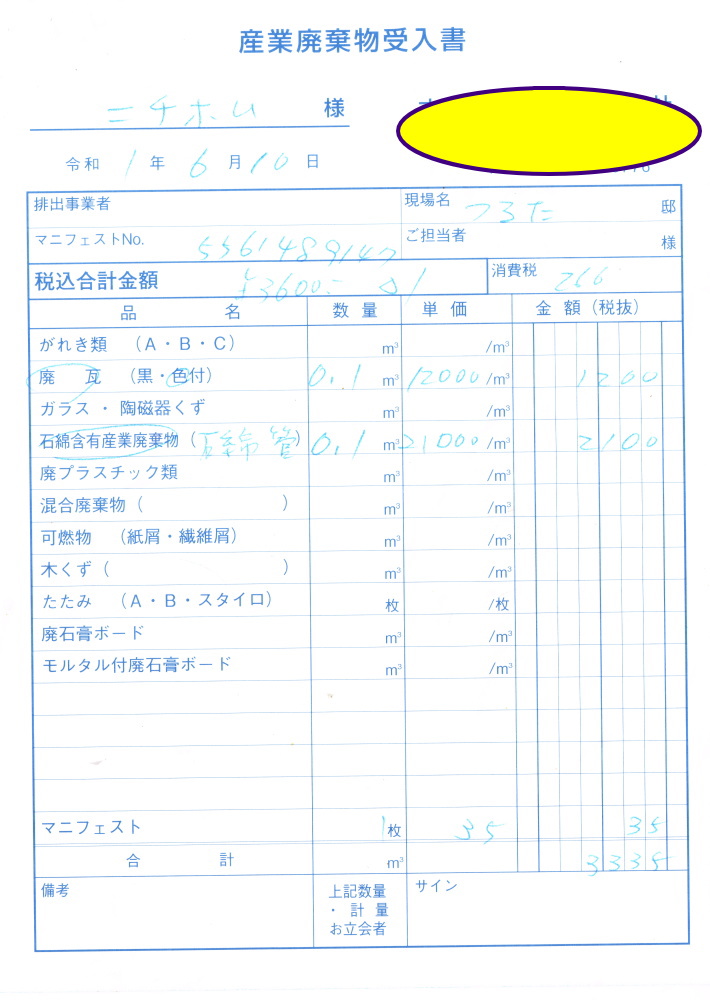 産業廃棄物受入書
ニチホーム 様
令和 1 年 6 月 10 日
排出事業者
現場名 つるた 邸
マニフェストNo. 5561489147
ご担当者 様
税込合計金額 ¥3600.-
消費税 266
品 名 数 量 単 価 金 額（税抜）
がれき類 （A・B・C） m³ /m³
廃 瓦 （黒・色付） 0.1 m³ 12000 /m³ 1200
ガラス ・ 陶磁器くず m³ /m³
石綿含有産業廃棄物（石綿管） 0.1 m³ 21000 /m³ 2100
廃プラスチック類 m³ /m³
混合廃棄物（ ） m³ /m³
可燃物 （紙屑・繊維屑） m³ /m³
木くず（ ） m³ /m³
たたみ （A・B・スタイロ） 枚 /枚
廃石膏ボード m³ /m³
モルタル付廃石膏ボード m³ /m³
マニフェスト 1 枚 35 35
合 計 m³ 3335
備考
上記数量
・ 計 量
お立会者
サイン